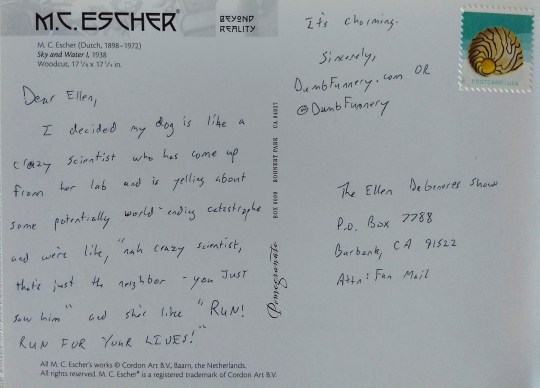 M.C. ESCHER®
BEYOND
REALITY
M. C. Escher (Dutch, 1898–1972)
Sky and Water I, 1938
Woodcut, 17 1/8 x 17 1/4 in.
Dear Ellen,
I decided my dog is like a
crazy scientist who has come up
from her lab and is yelling about
some potentially world-ending catastrophe
and we're like, "nah crazy scientist,
that's just the neighbor - you JUST
saw him" and she's like "RUN!
RUN FOR YOUR LIVES!"
All M. C. Escher's works © Cordon Art B.V., Baarn, the Netherlands.
All rights reserved. M. C. Escher® is a registered trademark of Cordon Art B.V.
Pomegranate
BOX 6099 ROHNERT PARK CA 94927
It's charming.
Sincerely,
DumbFunnery.com OR
@DumbFunnery
POSTCARD
The Ellen Degeneres Show
P.O. Box 7788
Burbank, CA 91522
Attn: Fan Mail